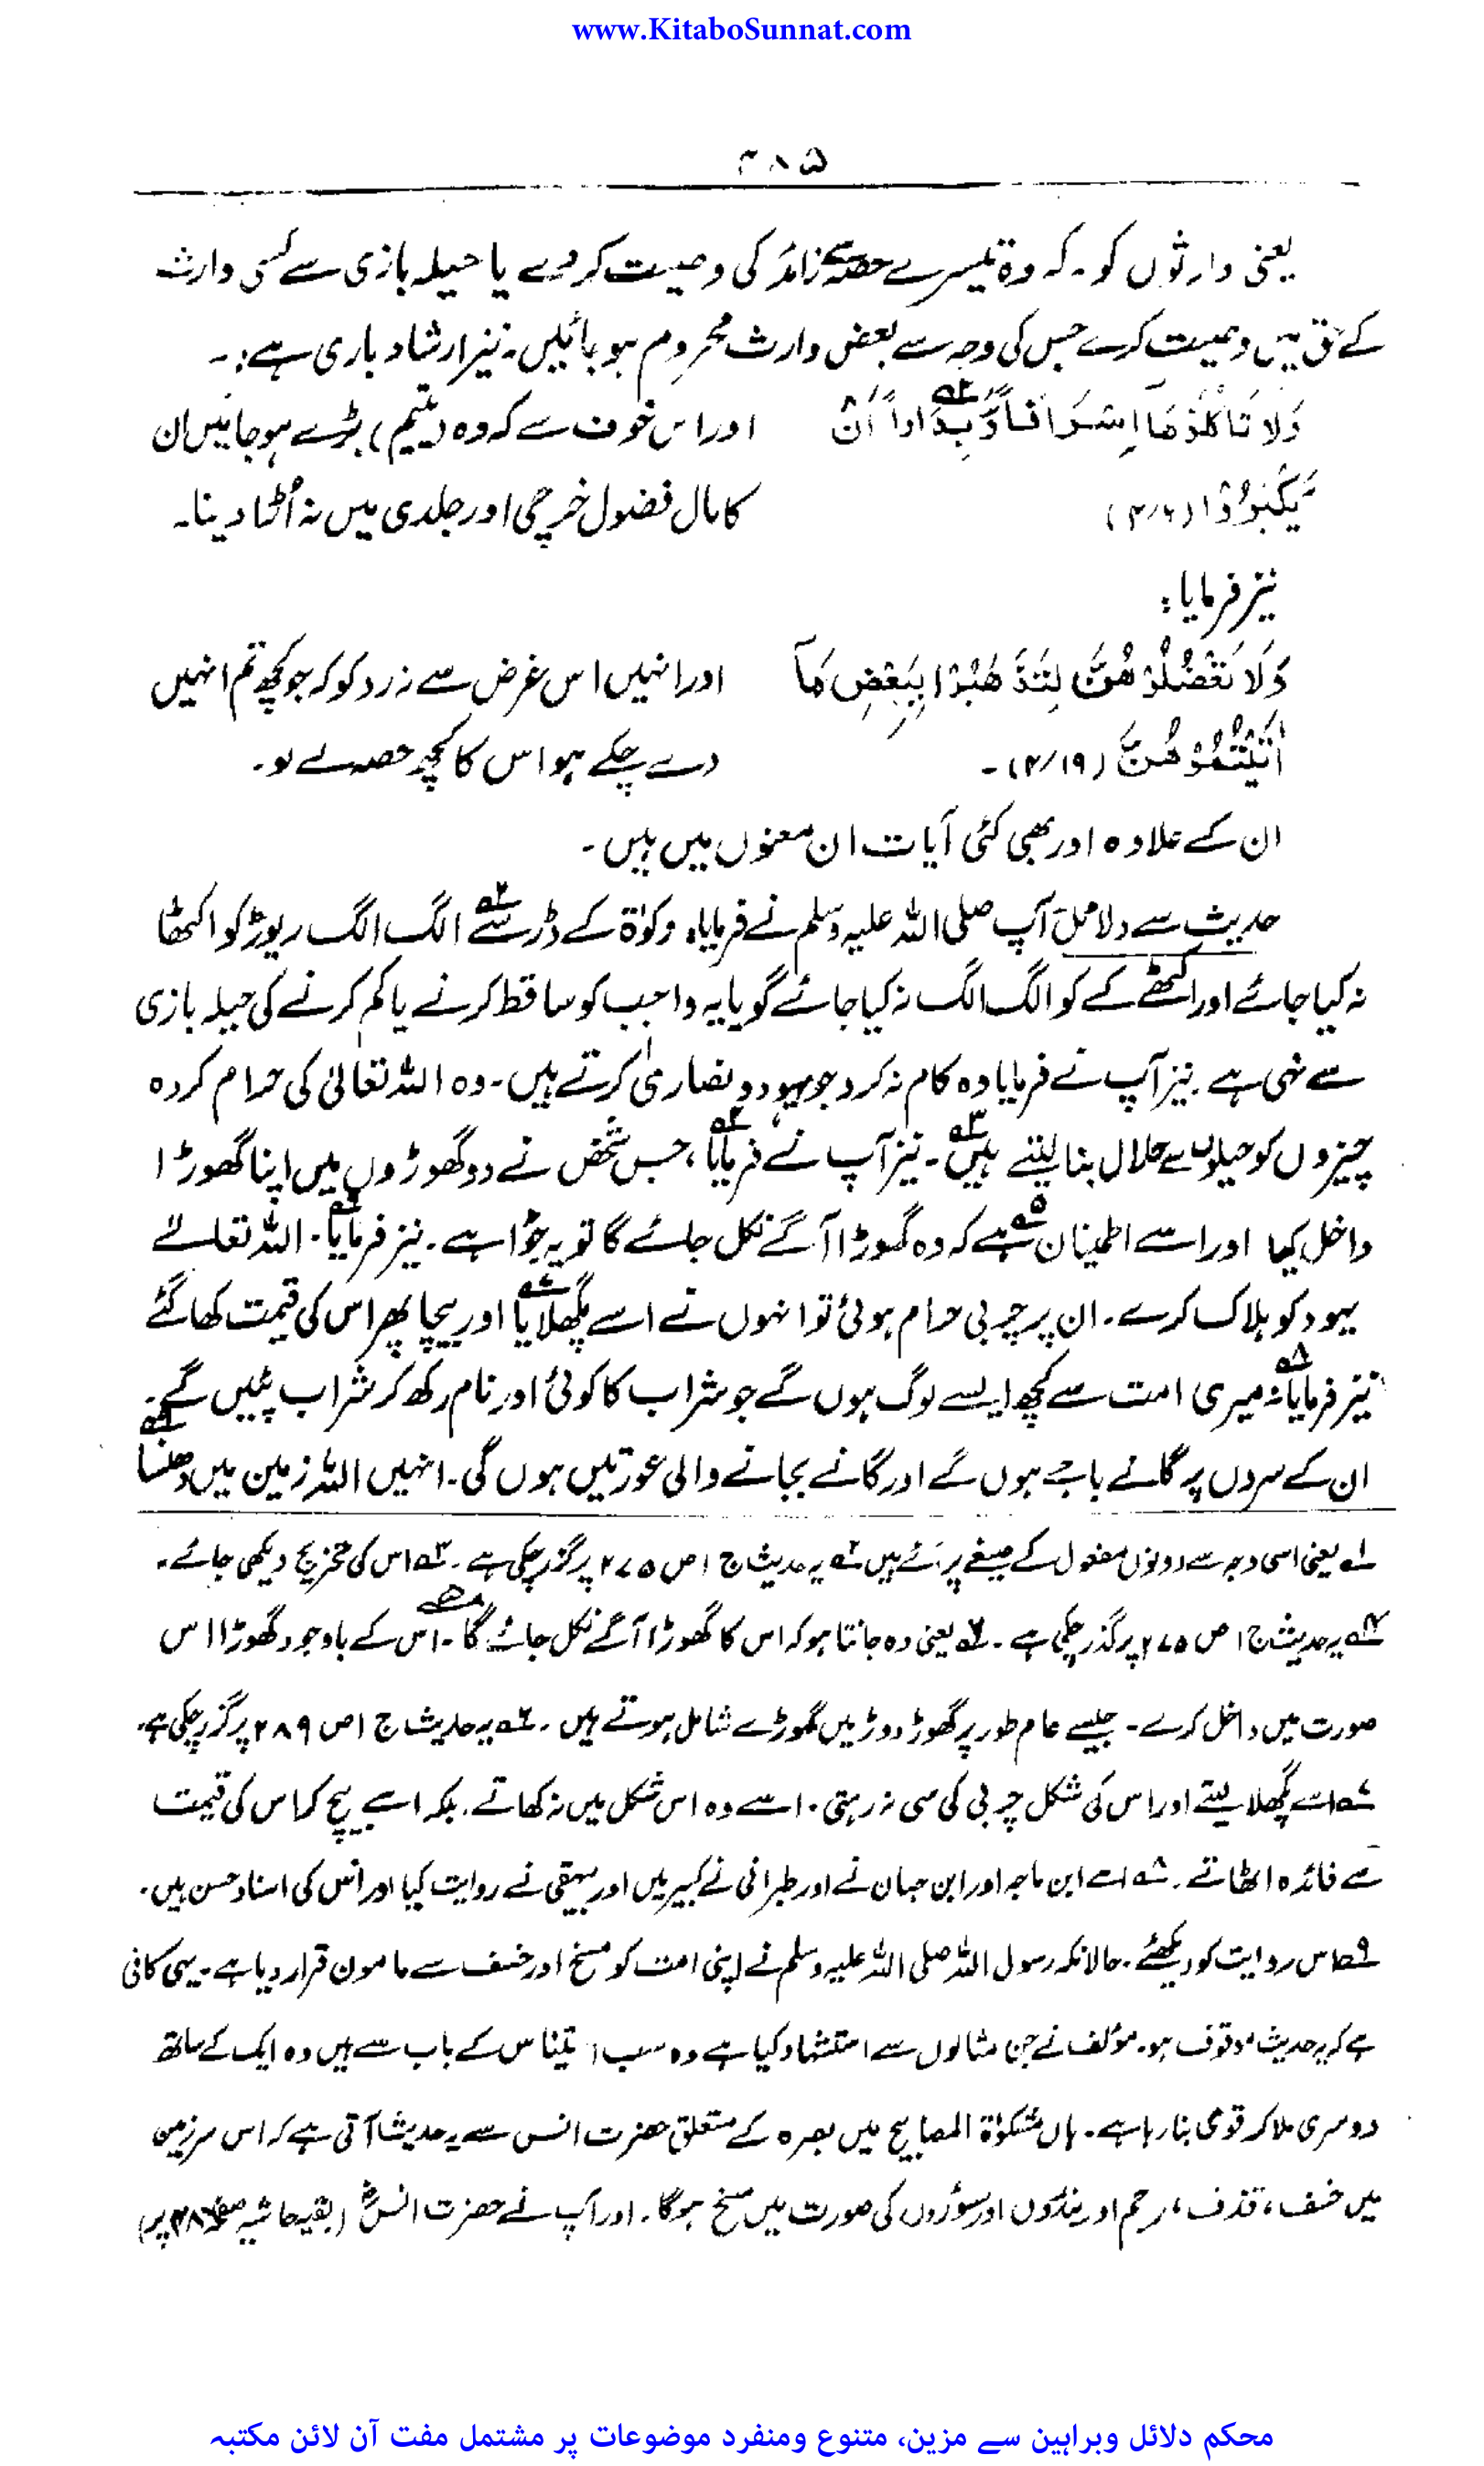 www.KitaboSunnat.com
۳۸۵
یعنی وارثوں کو۔ کہ وہ تیسرے حصہ سے زائد کی وصیت کر دے یا حیلہ بازی سے کسی وارث
کے حق میں وصیت کرے جس کی وجہ سے بعض وارث محروم ہو جائیں۔ نیز ارشاد باری ہے:۔
وَلَا تَأْكُلُوْهَا اِسْرَافًا وَّبِدَارًا اَنْ اور اس خوف سے کہ وہ (یتیم) بڑے ہو جائیں ان
يَّكْبَرُوْا (۴/۶) کا مال فضول خرچی اور جلدی میں نہ اُڑا دینا۔
نیز فرمایا:
وَلَا تَعْضُلُوْهُنَّ لِتَذْهَبُوْا بِبَعْضِ مَآ اور انہیں اس غرض سے نہ روکو کہ جو کچھ تم انہیں
اٰتَيْتُمُوْهُنَّ (۴/۱۹)۔ دے چکے ہو اس کا کچھ حصہ لے لو۔
ان کے علاوہ اور بھی کئی آیات ان معنوں میں ہیں۔
حدیث سے دلائل آپ صلی اللہ علیہ وسلم نے فرمایا، زکوٰۃ کے ڈر سے ۲ الگ الگ ریوڑ کو اکٹھا
نہ کیا جائے اور اکٹھے کے کو الگ الگ نہ کیا جائے گویا یہ واجب کو ساقط کرنے یا کم کرنے کی حیلہ بازی
سے نہی ہے۔ نیز آپ نے فرمایا وہ کام نہ کرو جو یہود و نصاریٰ کرتے ہیں۔ وہ اللہ تعالیٰ کی حرام کردہ
چیزوں کو حیلوں سے حلال بنا لیتے ہیں ۳۔ نیز آپ نے فرمایا ۴، جس شخص نے دو گھوڑوں میں اپنا گھوڑا
داخل کیا اور اسے اطمینان ۵ ہے کہ وہ گھوڑا آگے نکل جائے گا تو یہ جُوا ہے۔ نیز فرمایا ۶۔ اللہ تعالے
یہود کو ہلاک کرے۔ ان پر چربی حرام ہوئی تو انہوں نے اسے پگھلایا ۷ اور بیچا پھر اس کی قیمت کھا گئے
نیز فرمایا ۸: میری امت سے کچھ ایسے لوگ ہوں گے جو شراب کا کوئی اور نام رکھ کر شراب پئیں گے۔
ان کے سروں پر گانے باجے ہوں گے اور گانے بجانے والی عورتیں ہوں گی۔ انہیں اللہ زمین میں دھنسا ۹
۱ یعنی اسی وجہ سے دونوں مفعول کے صیغے پر آئے ہیں ۲ یہ حدیث ج ۱ ص ۲۷۵ پر گزر چکی ہے۔ ۳ اس کی تخریج دیکھی جائے۔
۴ یہ حدیث ج ۱ ص ۲۷۵ پر گذر چکی ہے۔ ۵ یعنی وہ جانتا ہو کہ اس کا گھوڑا آگے نکل جائے گا۔ اس کے باوجود گھوڑا اس
صورت میں داخل کرے۔ جیسے عام طور پر گھوڑ دوڑ میں گھوڑے شامل ہوتے ہیں۔ ۶ یہ حدیث ج ۱ ص ۲۸۹ پر گزر چکی ہے۔
۷ اسے پگھلا لیتے اور اس کی شکل چربی کی سی نہ رہتی۔ اسے وہ اس شکل میں نہ کھاتے۔ بلکہ اسے بیچ کر اس کی قیمت
سے فائدہ اٹھاتے۔ ۸ اسے ابن ماجہ اور ابن حبان نے اور طبرانی نے کبیر میں اور بیہقی نے روایت کیا اور اس کی اسناد حسن ہیں۔
۹ اس روایت کو دیکھئے۔ حالانکہ رسول اللہ صلی اللہ علیہ وسلم نے اپنی امت کو مسخ اور خسف سے مامون قرار دیا ہے۔ یہی کافی
ہے کہ یہ حدیث موقوف ہو۔ مؤلف نے جن مثالوں سے استشہاد کیا ہے وہ سب استیناس کے باب سے ہیں وہ ایک کے ساتھ
دوسری ملا کر قوی بنا رہا ہے۔ ہاں مشکوٰۃ المصابیح میں بصرہ کے متعلق حضرت انس سے یہ حدیث آتی ہے کہ اس سرزمین
میں خسف، قذف، رجم اور بندروں اور سؤروں کی صورت میں مسخ ہوگا۔ اور آپ نے حضرت انسؓ (بقیہ حاشیہ صفحہ ۳۸۶ پر)
محکم دلائل وبراہین سے مزین، متنوع ومنفرد موضوعات پر مشتمل مفت آن لائن مکتبہ